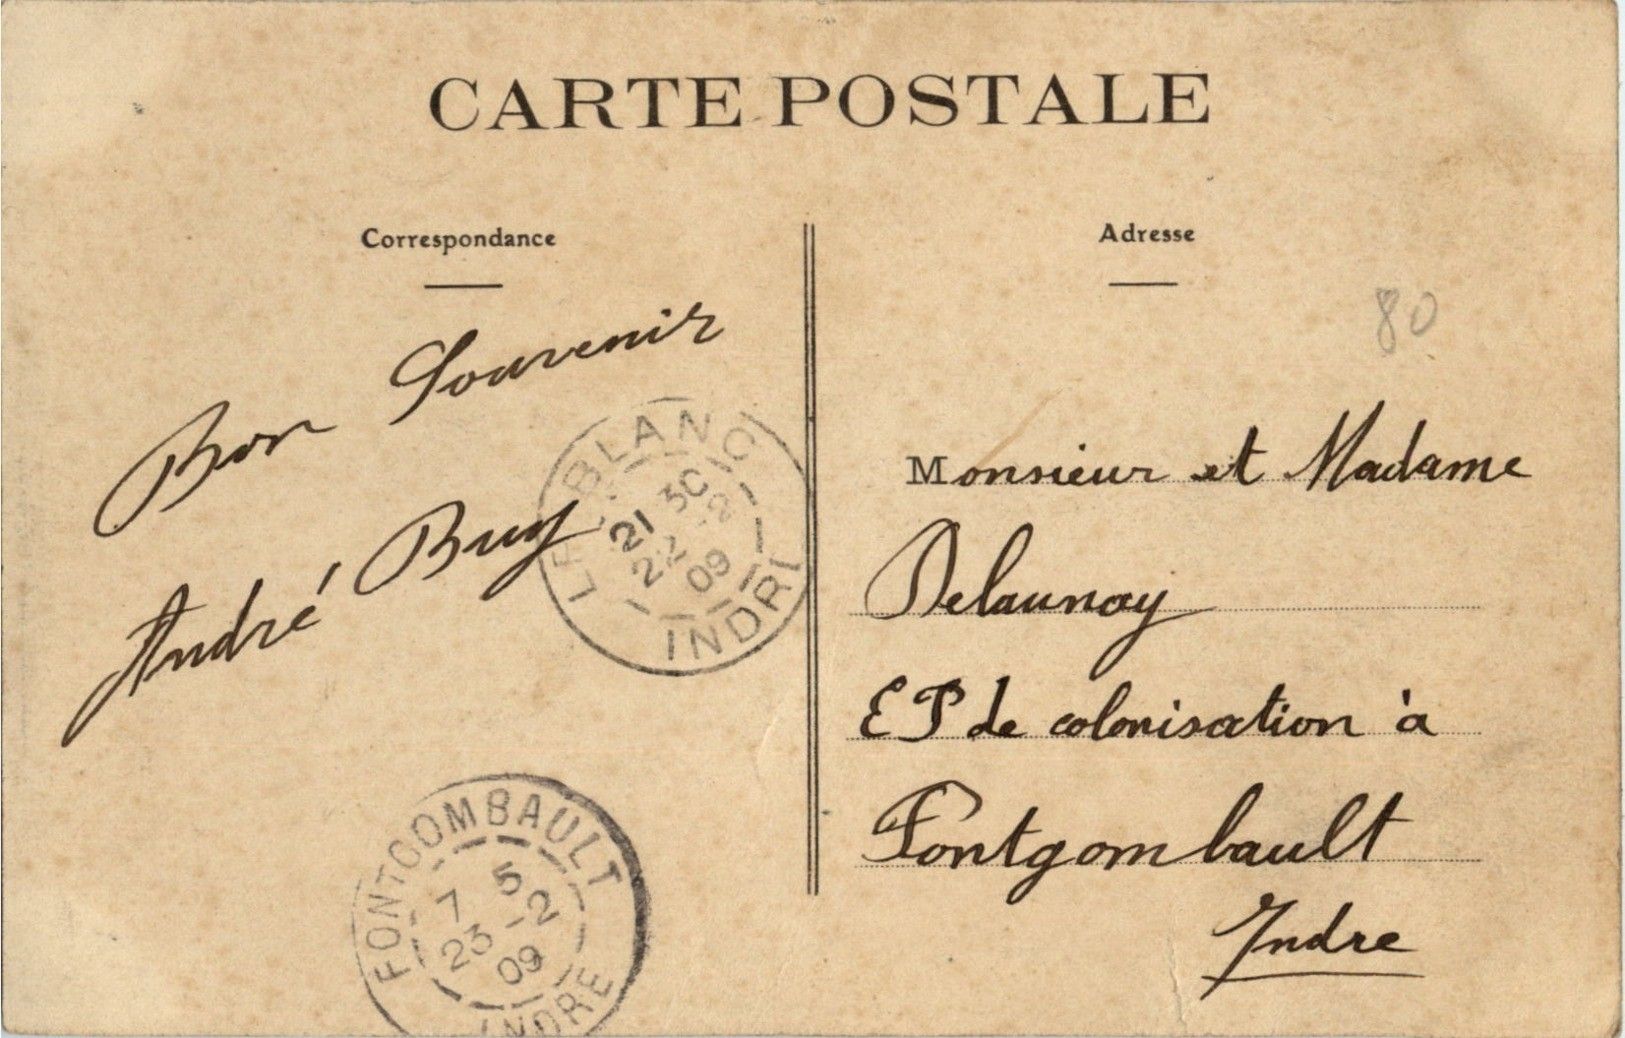 CARTE POSTALE
Correspondance
Adresse
80
Bon Souvenir
André Buy
Monsieur et Madame
Delaunay
EP de colonisation à
Fontgombault
Indre
LE BLANC
21 30
22 -2
09
INDRE
FONTGOMBAULT
7 5
23 -2
09
INDRE